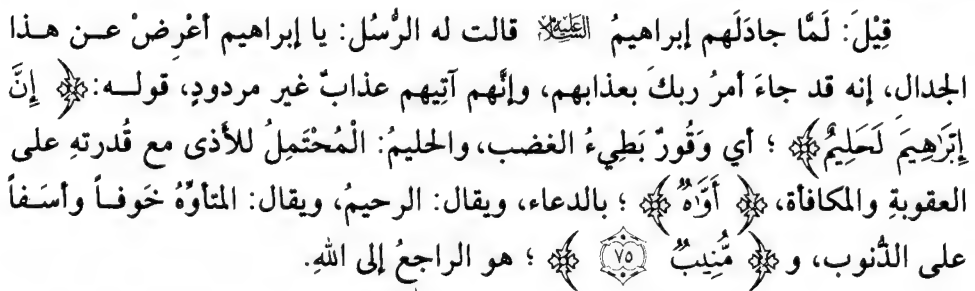 قِيْلَ: لَمَّا جادَلَهم إبراهيمُ عليه السلام قالت له الرُّسُل: يا إبراهيم أعْرِضْ عــن هــذا
الجدال، إنه قد جاءَ أمرُ ربكَ بعذابهم، وإنَّهم آتِيهم عذابٌ غير مردودٍ، قولــه:﴿ إِنَّ
إِبْرَٰهِيمَ لَحَلِيمٌ﴾ ؛ أي وَقُورٌ بَطِيءُ الغضب، والحليمُ: الْمُحْتَمِلُ للأَذى مع قُدرتهِ على
العقوبةِ والمكافأة، ﴿ أَوَّٰهٌ ﴾ ؛ بالدعاء، ويقال: الرحيمُ، ويقال: المتأوِّهُ خَوفــاً وأسَــفاً
على الذُّنوب، و ﴿ مُّنِيبٌ ۝٧٥ ﴾ ؛ هو الراجعُ إلى اللهِ.